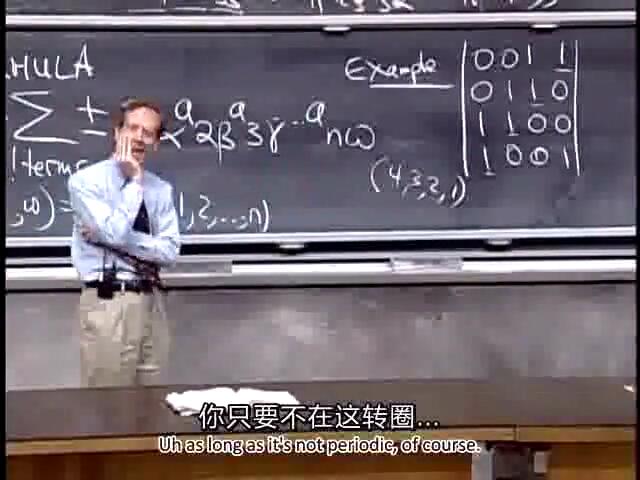 MULA
Example
∑ ± a₁α a2β a3γ ... a nω
! terms
, ω) = 1, 2, ..., n)
| 0 0 1 1 |
| 0 1 1 0 |
| 1 1 0 0 |
| 1 0 0 1 |
(4,3,2,1)
你只要不在这转圈...
Uh as long as it's not periodic, of course.